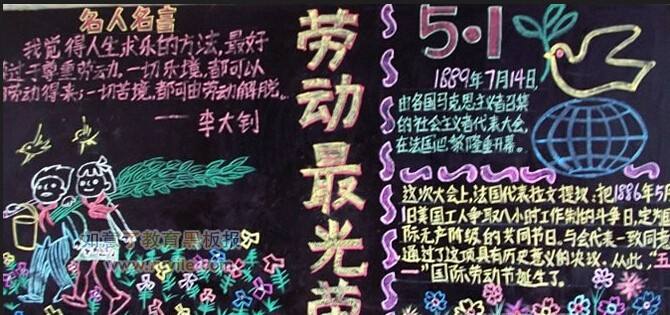 名人名言
我觉得人生求乐的方法，最好
过于尊重劳动。一切乐境，都可以
劳动得来，一切苦境，都可由劳动解脱。
——李大钊
劳动最光荣
5·1
1889年7月14日，
由各国马克思主义者召集
的社会主义者代表大会，
在法国巴黎隆重开幕。
这次大会上，法国代表拉文提议：把1886年5月
1日美国工人争取八小时工作制的斗争日，定为
际无产阶级的共同节日。与会代表一致同意
通过了这项具有历史意义的决议。从此，“五
一”国际劳动节诞生了。
教育黑板报